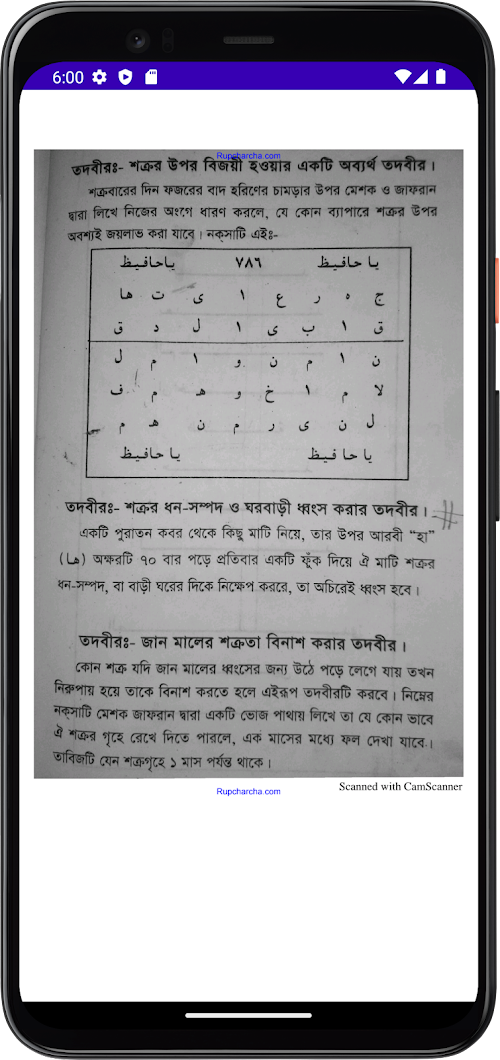 6:00
Rupcharcha.com
তদবীরঃ- শত্রুর উপর বিজয়ী হওয়ার একটি অব্যর্থ তদবীর।
শুক্রবারের দিন ফজরের বাদ হরিণের চামড়ার উপর মেশক ও জাফরান
দ্বারা লিখে নিজের অংগে ধারণ করলে, যে কোন ব্যাপারে শত্রুর উপর
অবশ্যই জয়লাভ করা যাবে। নক্সাটি এইঃ-
يا حافيظ ٧٨٦ ياحافيظ
ج ه ر ع ا ى ت ها
ق ا ب ى ا ل د ق
ن ا م ن و ا م ل
لا م ا خ و هـ م ف
ل ن ى ر م ن هـ م
يا حا فيظ يا حافيظ
তদবীরঃ- শত্রুর ধন-সম্পদ ও ঘরবাড়ী ধ্বংস করার তদবীর।
একটি পুরাতন কবর থেকে কিছু মাটি নিয়ে, তার উপর আরবী “হা”
(ها) অক্ষরটি ৭০ বার পড়ে প্রতিবার একটি ফুঁক দিয়ে ঐ মাটি শত্রুর
ধন-সম্পদ, বা বাড়ী ঘরের দিকে নিক্ষেপ করবে, তা অচিরেই ধ্বংস হবে।
তদবীরঃ- জান মালের শত্রুতা বিনাশ করার তদবীর।
কোন শত্রু যদি জান মালের ধ্বংসের জন্য উঠে পড়ে লেগে যায় তখন
নিরুপায় হয়ে তাকে বিনাশ করতে হলে এইরূপ তদবীরটি করবে। নিম্নের
নক্সাটি মেশক জাফরান দ্বারা একটি ভোজ পাথায় লিখে তা যে কোন ভাবে
ঐ শত্রুর গৃহে রেখে দিতে পারলে, এক মাসের মধ্যে ফল দেখা যাবে।
তাবিজটি যেন শত্রুগৃহে ১ মাস পর্যন্ত থাকে।
Scanned with CamScanner
Rupcharcha.com